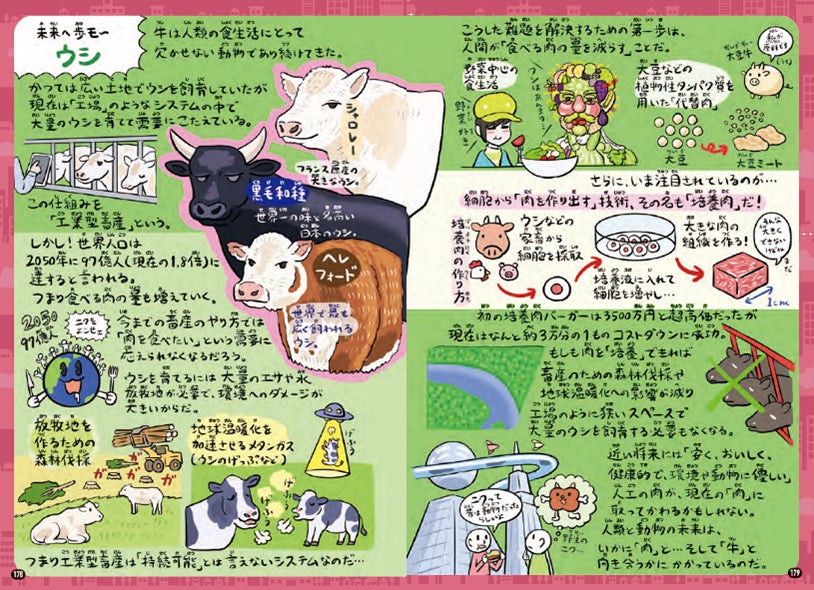 未来へ歩モ〜
ウシ
牛は人類の食生活にとって
欠かせない動物であり続けてきた。
かつては広い土地でウシを飼育していたが
現在は「工場」のようなシステムの中で
大量のウシを育てて需要にこたえている。
この仕組みを
「工業型畜産」という。
シャロレー
フランス原産の
大きなウシ。
黒毛和種
世界一の味と名高い
日本のウシ。
ヘレ
フォード
世界で最も
広く飼われる
ウシ。
しかし!世界人口は
2050年に97億人(現在の1.8倍)に
達すると言われる。
つまり食べる肉の量も増えていく。
2050
97億人
ニクを
よこせェ
今までの畜産のやり方では
「肉を食べたい」という需要に
応えられなくなるだろう。
ウシを育てるには大量のエサや水、
放牧地が必要で、環境へのダメージが
大きいからだ。
放牧地を
作るための
森林伐採
ガ ガ ガ
地球温暖化を
加速させるメタンガス
(ウシのげっぷなど)
げふぅ
げふぅ
つまり工業型畜産は「持続可能」とは言えないシステムなのだ…
178
こうした難題を解決するための第一歩は、
人間が「食べる肉の量を減らす」ことだ。
野菜中心の
食生活
野菜好き
大豆などの
植物性タンパク質を
用いた「代替肉」
大豆牛
(うそ)
私が
原料です
大豆
大豆ミート
さらに、いま注目されているのが…
細胞から「肉を作り出す」技術、その名も「培養肉」だ!
培養肉の作り方
ウシなどの
家畜から
細胞を採取
培養液に入れて
細胞を増やし…
大きな肉の
組織を作る!
そんな
大きく
できない
けどね
まだ
1cm
初の培養肉バーガーは3500万円と超高価だったが
現在はなんと約3万分の1ものコストダウンに成功。
もしも肉を「培養」できれば
畜産のための森林伐採や
地球温暖化への影響が減り
工場のように狭いスペースで
大量のウシを飼育する必要もなくなる。
近い将来には「安く、おいしく、
健康的で、環境や動物に優しい」
人工の肉が、現在の「肉」に
取ってかわるかもしれない。
人類と動物の未来は、
いかに「肉」と…そして「牛」と
向き合うかにかかっているのだ。
ニクって
昔は動物だった
らしいよ
野生の
ニク…
179